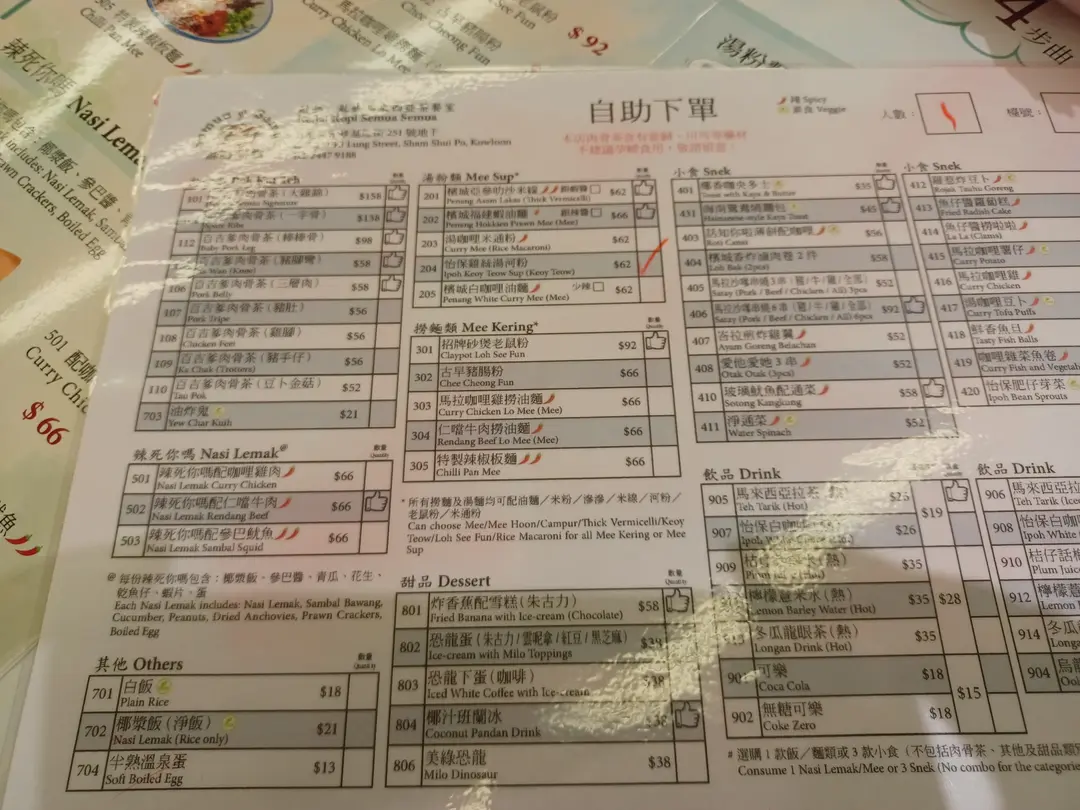 $92
Chilli Pan Mee
Curry Chicken Lo Mee
Chee Cheong Fun
湯粉
4步曲
辣死你嗎 Nasi Lem
501 配咖
Curry Chic
$66
自助下單
辣 Spicy
素食 Veggie
人數：
檯號：
Kopi Semua Semua
251 號地下
Lung Street, Shum Shui Po, Kowloon
$158
$138
112 百吉爹肉骨茶（棒棒骨） $98
Baby Pork Leg
$58
106 百吉爹肉骨茶（三層肉） $58
Pork Belly
107 百吉爹肉骨茶（豬肚） $56
Pork Tripe
108 百吉爹肉骨茶（雞腳） $56
Chicken Feet
109 百吉爹肉骨茶（豬手仔） $56
Ka Chak (Trotters)
110 百吉爹肉骨茶（豆卜金菇） $52
Tau Pok
703 油炸鬼 $21
Yew Char Kuih
辣死你嗎 Nasi Lemak@
數量
501 辣死你嗎配咖哩雞肉 $66
Nasi Lemak Curry Chicken
502 辣死你嗎配仁當牛肉 $66
Nasi Lemak Rendang Beef
503 辣死你嗎配參巴魷魚 $66
Nasi Lemak Sambal Squid
@ 每份辣死你嗎包含：椰漿飯、參巴醬、青瓜、花生、
乾魚仔、蝦片、蛋
Each Nasi Lemak includes: Nasi Lemak, Sambal Bawang,
Cucumber, Peanuts, Dried Anchovies, Prawn Crackers,
Boiled Egg
其他 Others
數量
701 白飯 $18
Plain Rice
702 椰漿飯（淨飯） $21
Nasi Lemak (Rice only)
704 半熟溫泉蛋 $13
Soft Boiled Egg
湯粉類 Mee Sup*
201 檳城亞參叻沙米線 $62
Penang Asam Laksa (Thick Vermicelli)
202 檳城福建蝦油麵 $66
Penang Hokkien Prawn Mee (Mee)
203 湯咖哩米通粉 $62
Curry Mee (Rice Macaroni)
204 怡保雞絲湯河粉 $62
Ipoh Keoy Teow Sup (Keoy Teow)
205 檳城白咖哩油麵 少辣 $62
Penang White Curry Mee (Mee)
撈麵類 Mee Kering*
數量
301 招牌砂煲老鼠粉 $92
Claypot Loh See Fun
302 古早豬腸粉 $66
Chee Cheong Fun
303 馬拉咖哩雞撈油麵 $66
Curry Chicken Lo Mee (Mee)
304 仁噹牛肉撈油麵 $66
Rendang Beef Lo Mee (Mee)
305 特製辣椒板麵 $66
Chilli Pan Mee
* 所有撈麵及湯麵均可配油麵／米粉／滲滲／米線／河粉／
老鼠粉／米通粉
Can choose Mee/Mee Hoon/Campur/Thick Vermicelli/Keoy
Teow/Loh See Fun/Rice Macaroni for all Mee Kering or Mee
Sup
甜品 Dessert
數量
801 炸香蕉配雪糕（朱古力） $58
Fried Banana with Ice-cream (Chocolate)
802 恐龍蛋（朱古力/雲呢拿/紅豆/黑芝麻）
Ice-cream with Milo Toppings
803 恐龍下蛋（咖啡）
Iced White Coffee with Ice-cream
804 椰汁班蘭冰
Coconut Pandan Drink
806 美綠恐龍 $38
Milo Dinosaur
小食 Snek
401 椰香咖央多士 $35
Toast with Kaya & Butter
431 $45
Hainanese-style Kaya Toast
403 $56
Roti Canai
404 檳城春炸滷肉卷 2 件 $58
Loh Bak (2pcs)
405 $52
Satay (Pork / Beef / Chicken / All) 3pcs
406 $92
Satay (Pork / Beef / Chicken / All) 6pcs
407 峇拉煎炸雞翼 $52
Ayam Goreng Belachan
408 愛他愛她 3 串 $52
Otak Otak (3pcs)
410 玻璃魷魚配通菜 $58
Sotong Kangkung
411 淨通菜 $52
Water Spinach
小食 Snek
412 羅惹炸豆卜
Rojak Tauhu Goreng
413 魚仔醬蘿蔔糕
Fried Radish Cake
414 魚仔醬撈啦啦
La La (Clams)
415 馬拉咖哩薯仔
Curry Potato
416 馬拉咖哩雞
Curry Chicken
417 湯咖哩豆卜
Curry Tofu Puffs
418 鮮香魚旦
Tasty Fish Balls
419 咖哩雞菜魚卷
Curry Fish and Vegetab
420 怡保肥仔芽菜
Ipoh Bean Sprouts
飲品 Drink
905 馬來西亞拉茶 $25
Teh Tarik (Hot)
$19
907 怡保白咖 $26
Ipoh White
909 $35
檸檬薏米水（熱） $35 $28
Lemon Barley Water (Hot)
冬瓜龍眼茶（熱） $35
Longan Drink (Hot)
可樂 $18
Coca Cola
$15
902 無糖可樂 $18
Coke Zero
飲品 Drink
906 馬來西亞
Teh Tarik (Ice
908 怡保白咖
Ipoh White
910 桔仔話梅
Plum Juice
912 檸檬薏
Lemon
914 冬瓜
Longa
904 烏龍
Oolo
# 選購 1 款飯／麵類或 3 款小食（不包括肉骨茶、其他及甜品類
Consume 1 Nasi Lemak/Mee or 3 Snek (No combo for the categorie